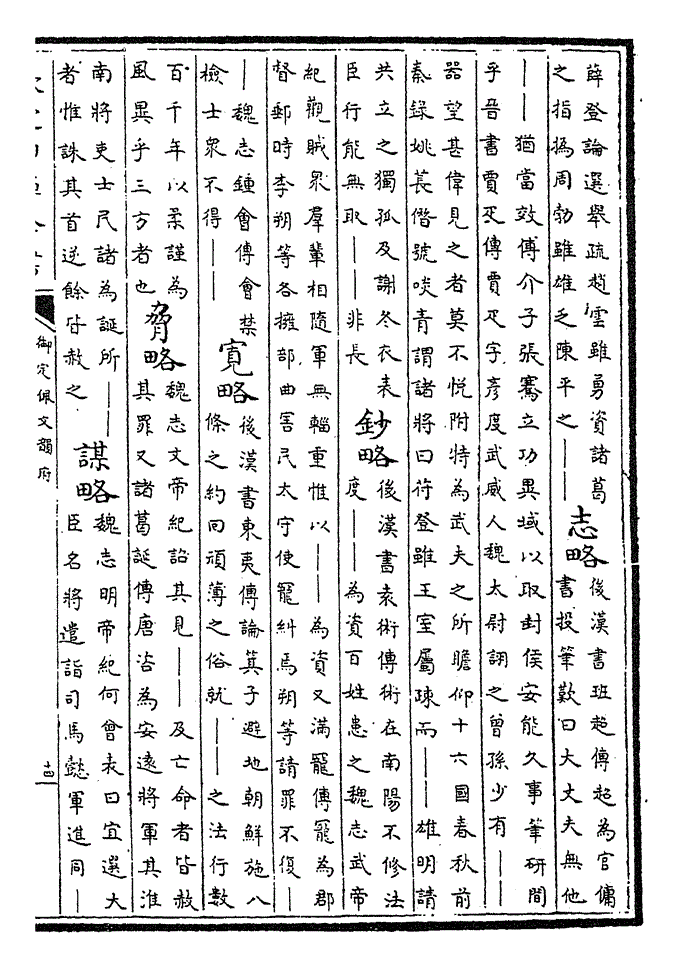 薛登論選舉疏趙雲雖勇資諸葛
之指撝周勃雖雄乏陳平之——
志略
後漢書班超傳超為官傭
書投筆歎曰大丈夫無他
——猶當效傅介子張騫立功異域以取封侯安能久事筆硏間
乎晉書賈疋傳賈疋字彥度武威人魏太尉詡之曾孫少有——
器望甚偉見之者莫不悅附特為武夫之所瞻仰十六國春秋前
秦錄姚萇僭號啖青謂諸將曰苻登雖王室屬疎而——雄明請
共立之獨孤及謝冬衣表
臣行能無取——非長
鈔略
後漢書袁術傳術在南陽不修法
度——為資百姓患之魏志武帝
紀觀賊眾羣輩相隨軍無輜重惟以——為資又滿寵傳寵為郡
督郵時李朔等各擁部曲害民太守使寵糾焉朔等請罪不復—
—魏志鍾會傳會禁
檢士眾不得——
寬略
後漢書東夷傳論箕子避地朝鮮施八
條之約回頑薄之俗就——之法行數
百千年以柔謹為
風異乎三方者也
脅略
魏志文帝紀詔其見——及亡命者皆赦
其罪又諸葛誕傳唐咨為安遠將軍其淮
南將吏士民諸為誕所——
者惟誅其首逆餘皆赦之
謀略
魏志明帝紀何曾表曰宜選大
臣名將遣詣司馬懿軍進同—
御定佩文韻府
十四